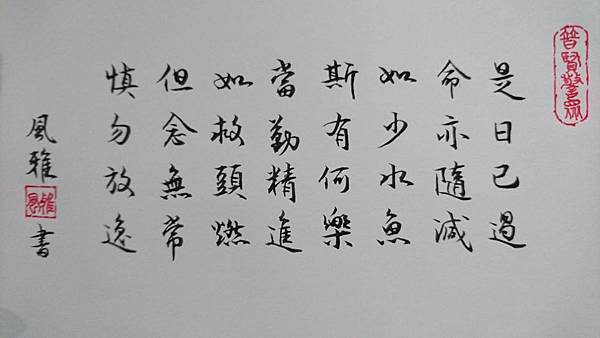 普賢警眾
是日已過
命亦隨減
如少水魚
斯有何樂
當勤精進
如救頭燃
但念無常
慎勿放逸
風雅書